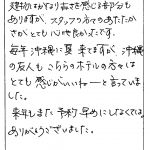 建物はかなり古さを感じる部分も
ありますが、スタッフの方々のあたたか
さがとても心地良かったです。
毎年沖縄に夏来ますが、沖縄
の友人もこちらのホテルの方々は
とても感じがいいねーと言っていま
した。
来年もまた予約早めにしなくては。
ありがとうございました。